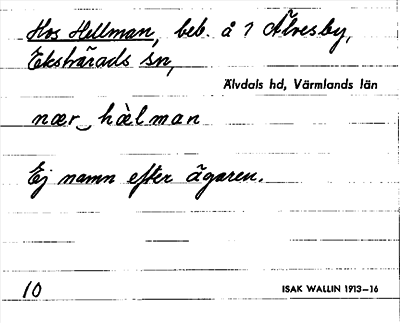 Hos Hellman, beb. å 1 Älvesby,
Ekshärads sn,
Älvdals hd, Värmlands län
nær hàlman
Ej namn efter ägaren.
10 ISAK WALLIN 1913–16